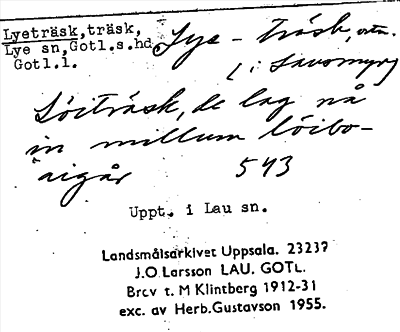 Lyeträsk, träsk,
Lye sn, Gotl.s.hd,
Gotl.l.
Lye - träsk,
i Lausmyra
Löiträsk, de lag nå
in millum löibo-
aigår 543
Uppt. i Lau sn.
Landsmålsarkivet Uppsala. 23237
J.O Larsson LAU. GOTL.
Brev t. M Klintberg 1912-31
exc. av Herb.Gustavson 1955.